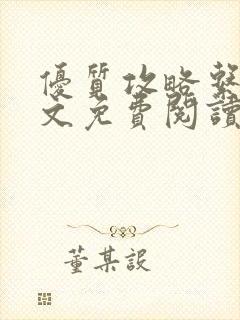 優質攻略繫
文免費閱讀
董某設